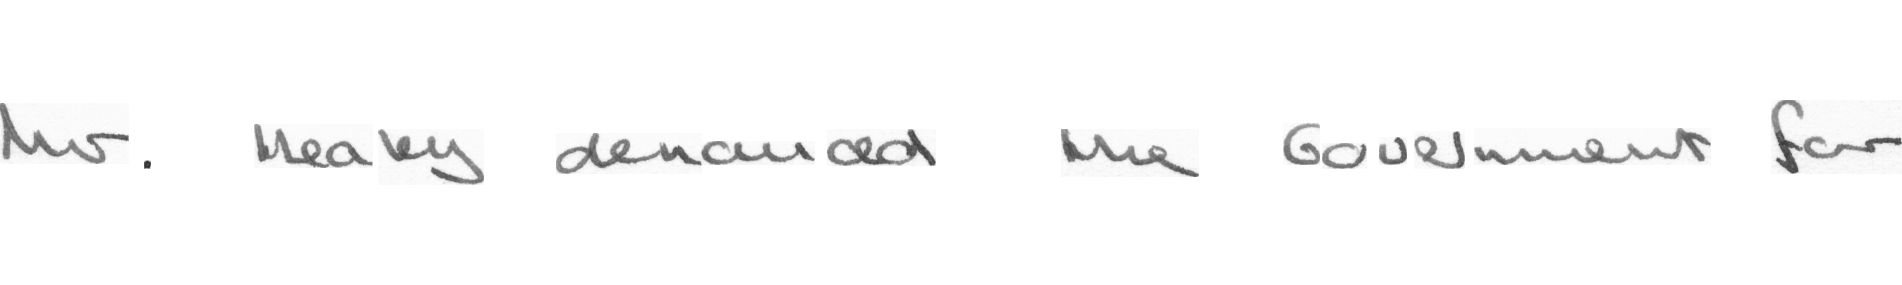 Mr. Healey denounced the Government for